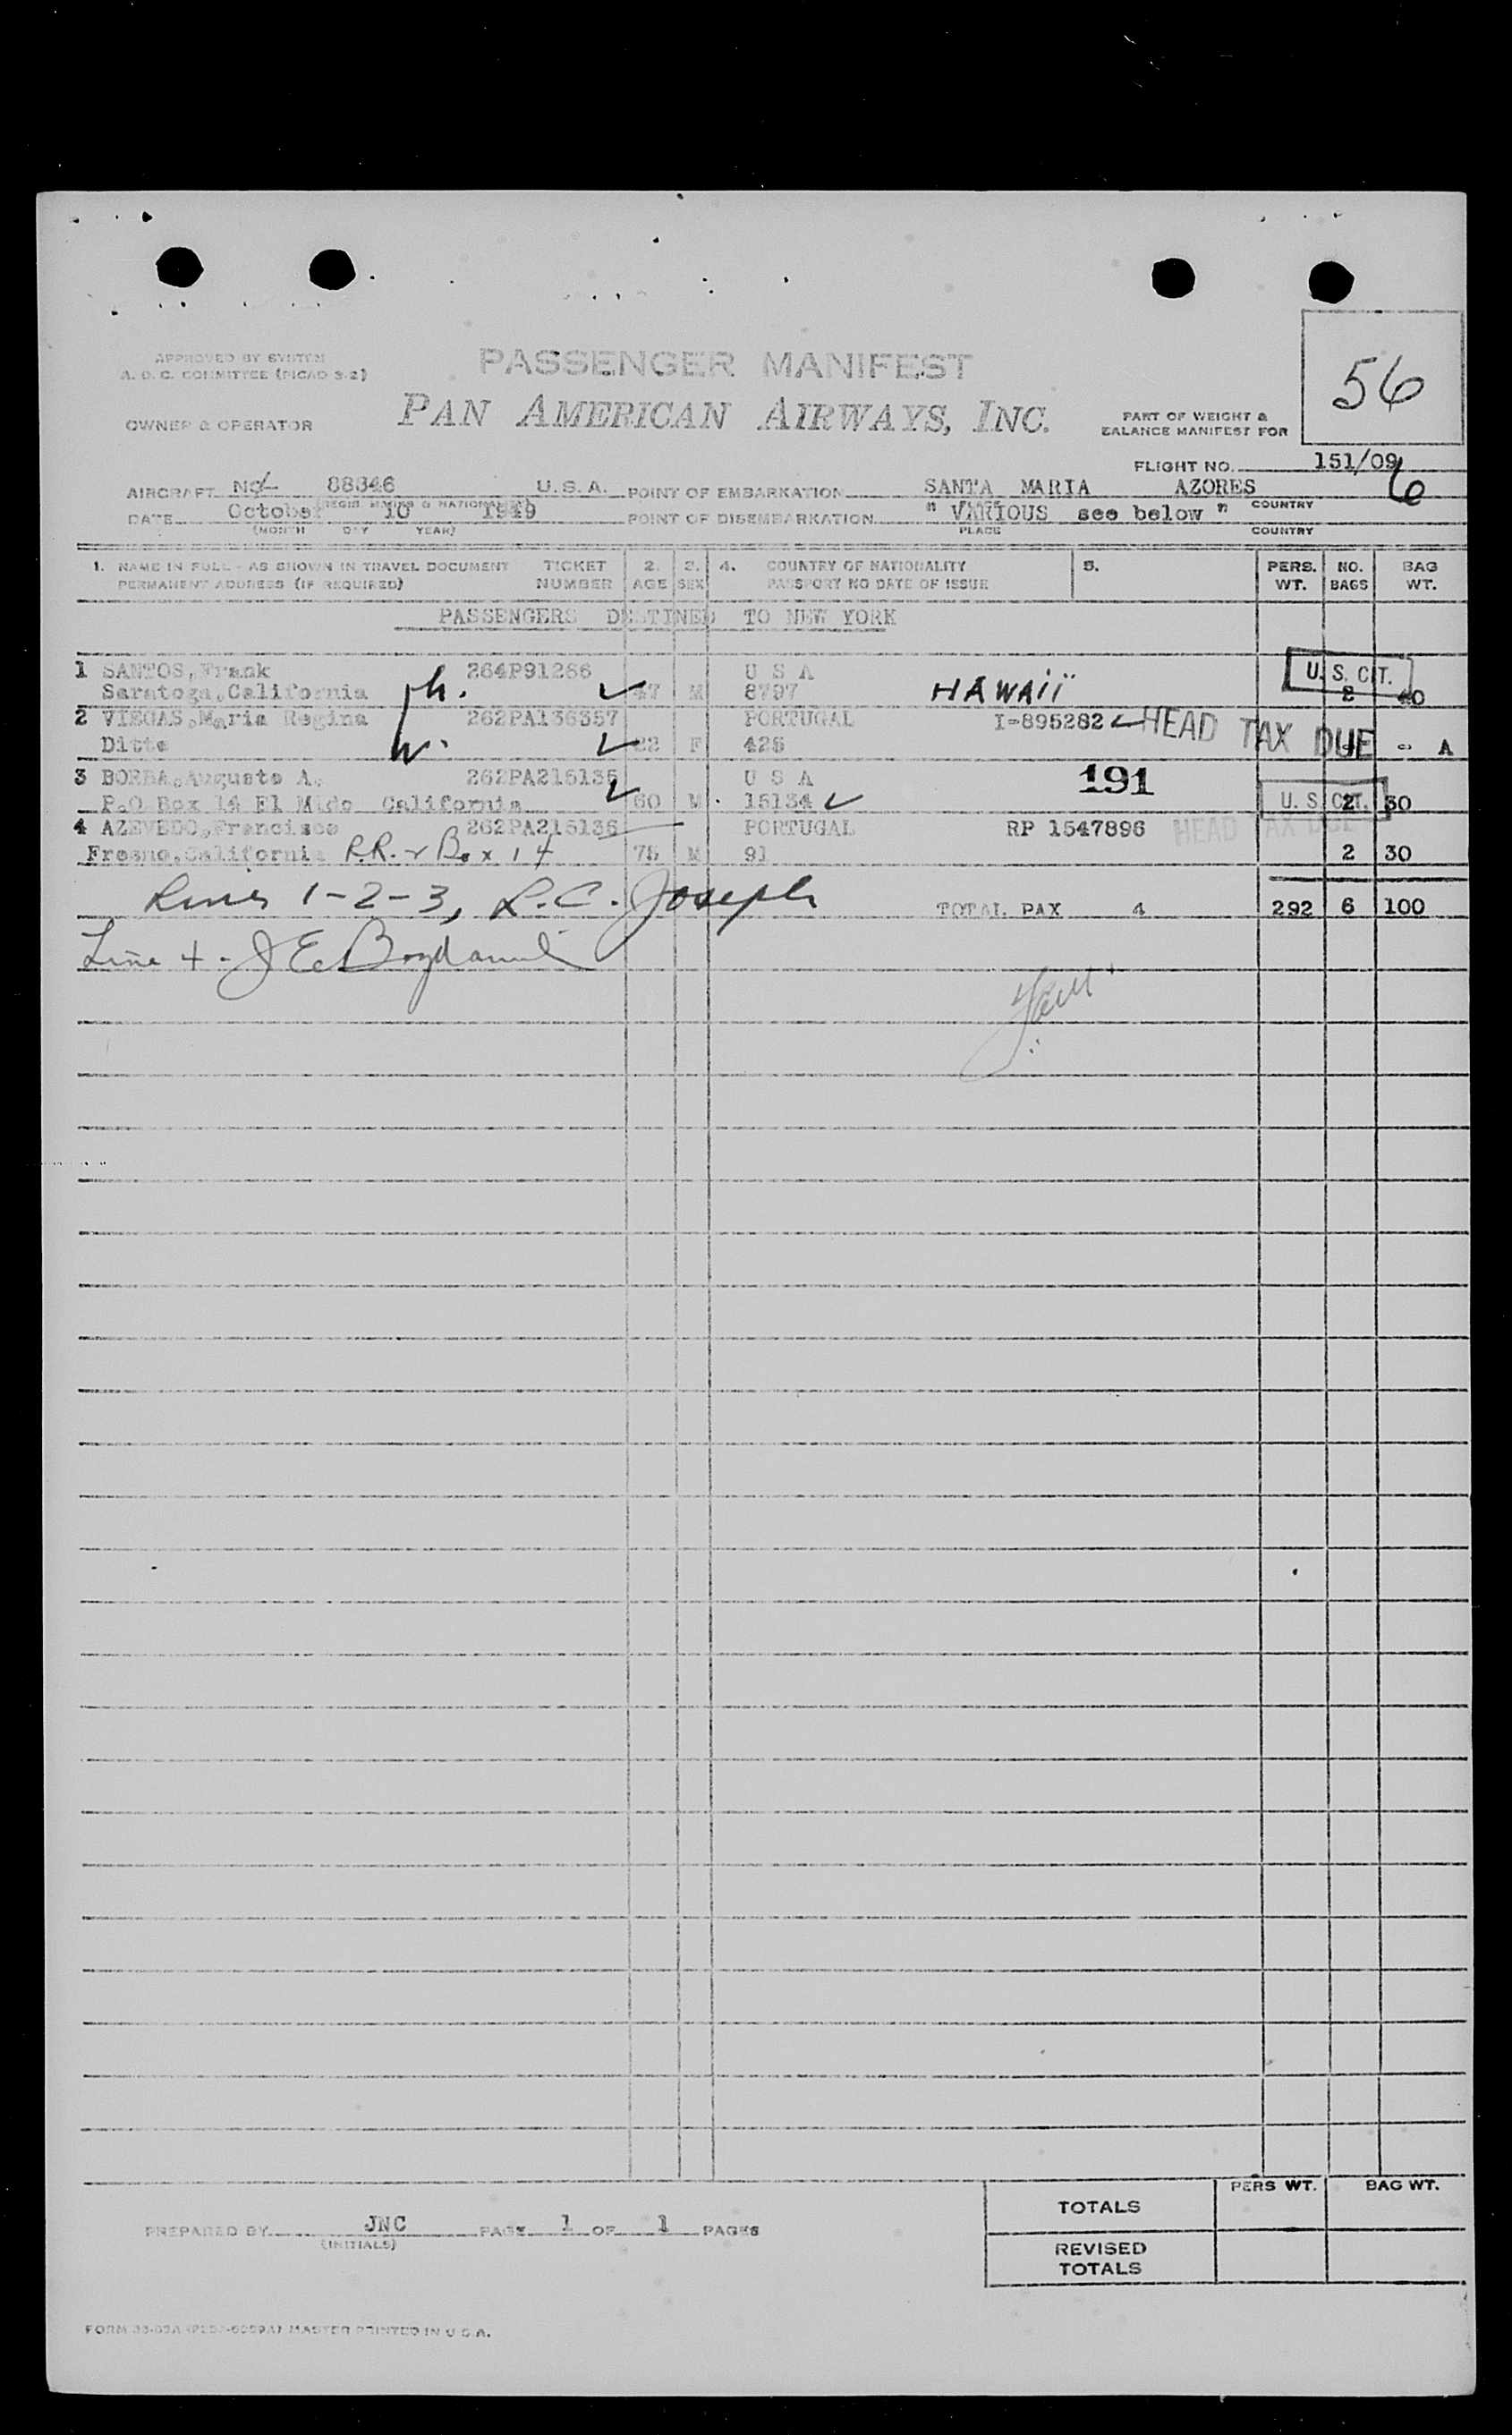 56
APPROVED BY SYSTEM
A. O. C. COMMITTEE (PICAO 3-2)
PASSENGER MANIFEST
OWNER & OPERATOR
PAN AMERICAN AIRWAYS, INC.
PART OF WEIGHT &
BALANCE MANIFEST FOR
FLIGHT NO. 151/09
6
AIRCRAFT NC 88846 U.S.A. POINT OF EMBARKATION SANTA MARIA AZORES
(REGIS. MARKS & NATIONALITY) COUNTRY
DATE October 10 1949 POINT OF DISEMBARKATION " VARIOUS see below "
(MONTH DAY YEAR) PLACE COUNTRY
1. NAME IN FULL - AS SHOWN IN TRAVEL DOCUMENT TICKET 2. 3. 4. COUNTRY OF NATIONALITY 5. PERS. NO. BAG
PERMANENT ADDRESS (IF REQUIRED) NUMBER AGE SEX PASSPORT NO DATE OF ISSUE WT. BAGS WT.
PASSENGERS DESTINED TO NEW YORK
1 SANTOS, Frank 264P91286 U S A U. S. CIT.
Saratoga, California 47 M 8797 HAWAII 2 40
2 VIEGAS, Maria Regina 262PA136357 PORTUGAL I-895282 HEAD TAX DUE
Ditto 22 F 425 - A
3 BORBA, Augusto A. 262PA215135 U S A 191
P.O Box 14 El Mido California 60 M 15134 U. S. CIT. 2 30
4 AZEVEDO, Francisco 262PA215136 PORTUGAL RP 1547896 HEAD TAX DUE
Fresno, California R.R. 2 Box 14 75 M 91 2 30
Lines 1-2-3, L.C. Joseph TOTAL PAX 4 292 6 100
Line 4 - J E
PREPARED BY JNC PAGE 1 OF 1 PAGES
(INITIALS)
PERS WT. BAG WT.
TOTALS
REVISED
TOTALS
MASTER PRINTED IN U.S.A.